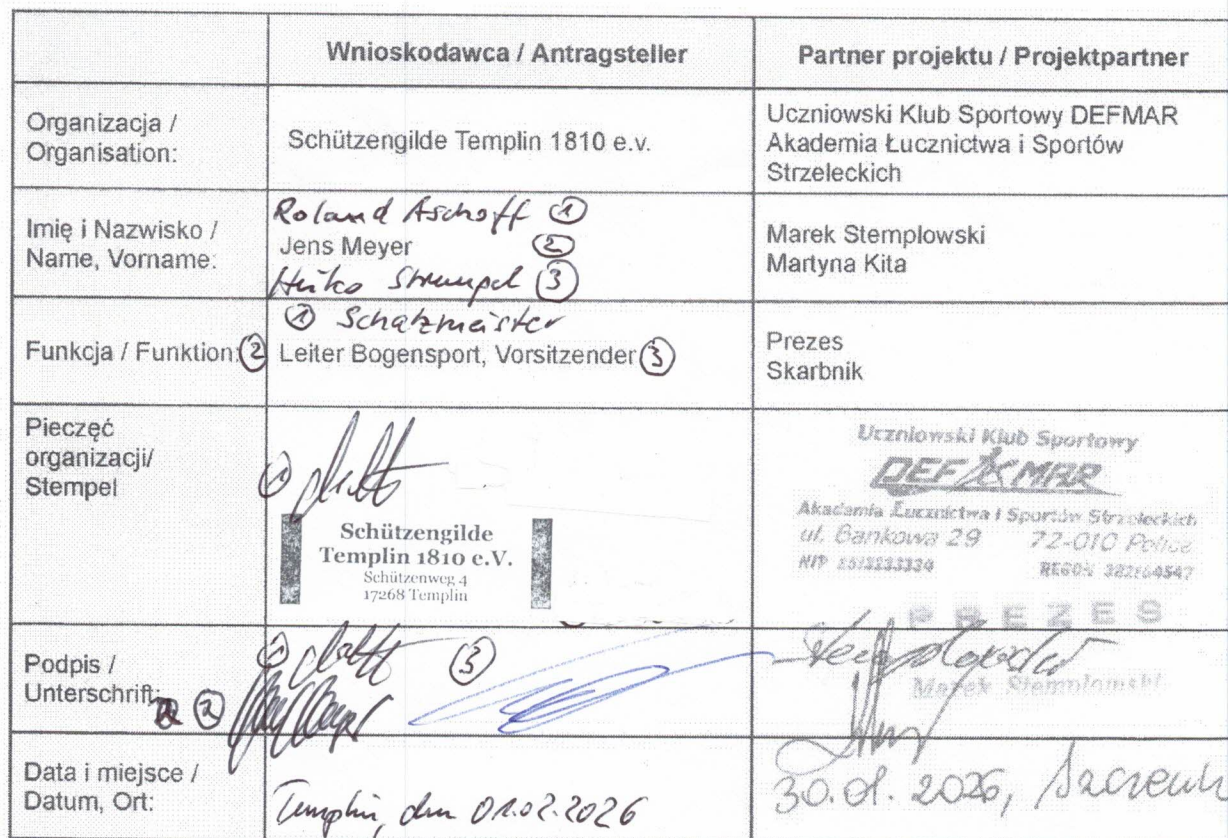 Wnioskodawca / Antragsteller
Partner projektu / Projektpartner
Organizacja /
Organisation:
Schützengilde Templin 1810 e.v.
Uczniowski Klub Sportowy DEFMAR
Akademia Łucznictwa i Sportów
Strzeleckich
Imię i Nazwisko /
Name, Vorname:
Roland Aschoff ①
Jens Meyer ②
Heiko Strempel ③
Marek Stemplowski
Martyna Kita
Funkcja / Funktion: ②
① Schatzmeister
Leiter Bogensport, Vorsitzender ③
Prezes
Skarbnik
Pieczęć
organizacji/
Stempel
①
Schützengilde
Templin 1810 e.V.
Schützenweg 4
17268 Templin
Uczniowski Klub Sportowy
DEFMAR
Akademia Łucznictwa i Sportów Strzeleckich
ul. Bankowa 29 72-010 Police
NIP
REGON
PREZES
Podpis /
Unterschrift:
② ① ③
Marek Stemplowski
Data i miejsce /
Datum, Ort:
Templin, den 01.02.2026
30.01.2026,